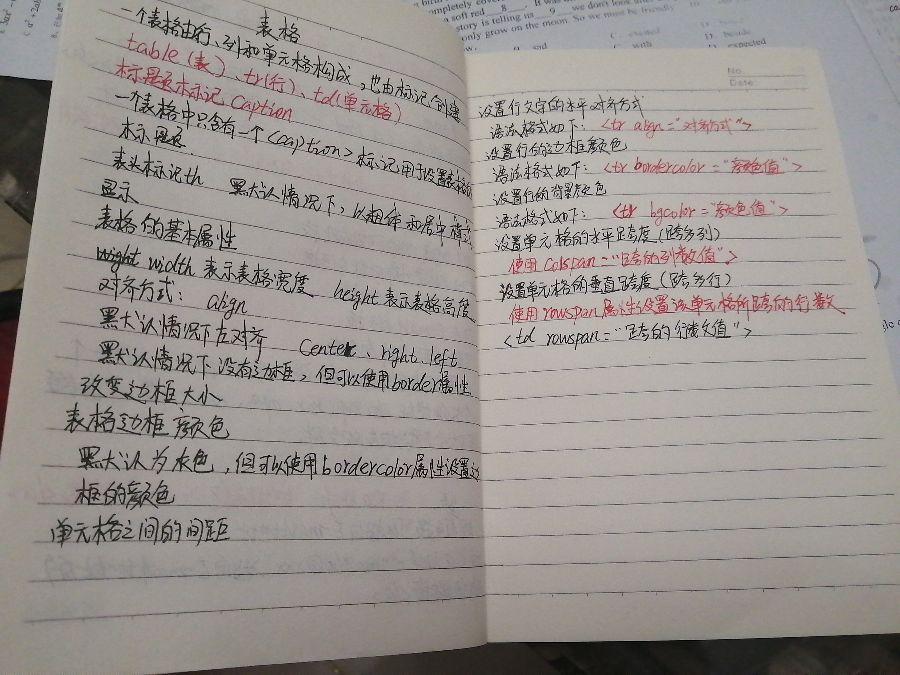 表格
一个表格由行、列和单元格构成，也由标记创建
table（表）、tr(行)、td(单元格)
标题标记 caption
一个表格中只含有一个<caption>标记用于设置表格的
标题
表头标记th 默认情况下，以粗体和居中样式
显示
表格的基本属性
width 表示表格宽度 height表示表格高度
对齐方式： align
默认情况下左对齐 Center、right、left
默认情况下没有边框，但可以使用border属性
改变边框大小
表格边框颜色
默认为灰色，但可以使用bordercolor属性设置边
框的颜色
单元格之间的间距
No.
Date
设置行文字的水平对齐方式
语法格式如下： <tr align="对齐方式">
设置行的边框颜色
语法格式如下： <tr bordercolor="颜色值">
设置行的背景颜色
语法格式如下： <tr bgcolor="颜色值">
设置单元格的水平跨度（跨多列）
使用colspan="跨的列数值">
设置单元格的垂直跨度（跨多行）
使用rowspan属性设置该单元格所跨的行数
<td rowspan="跨的行数值">